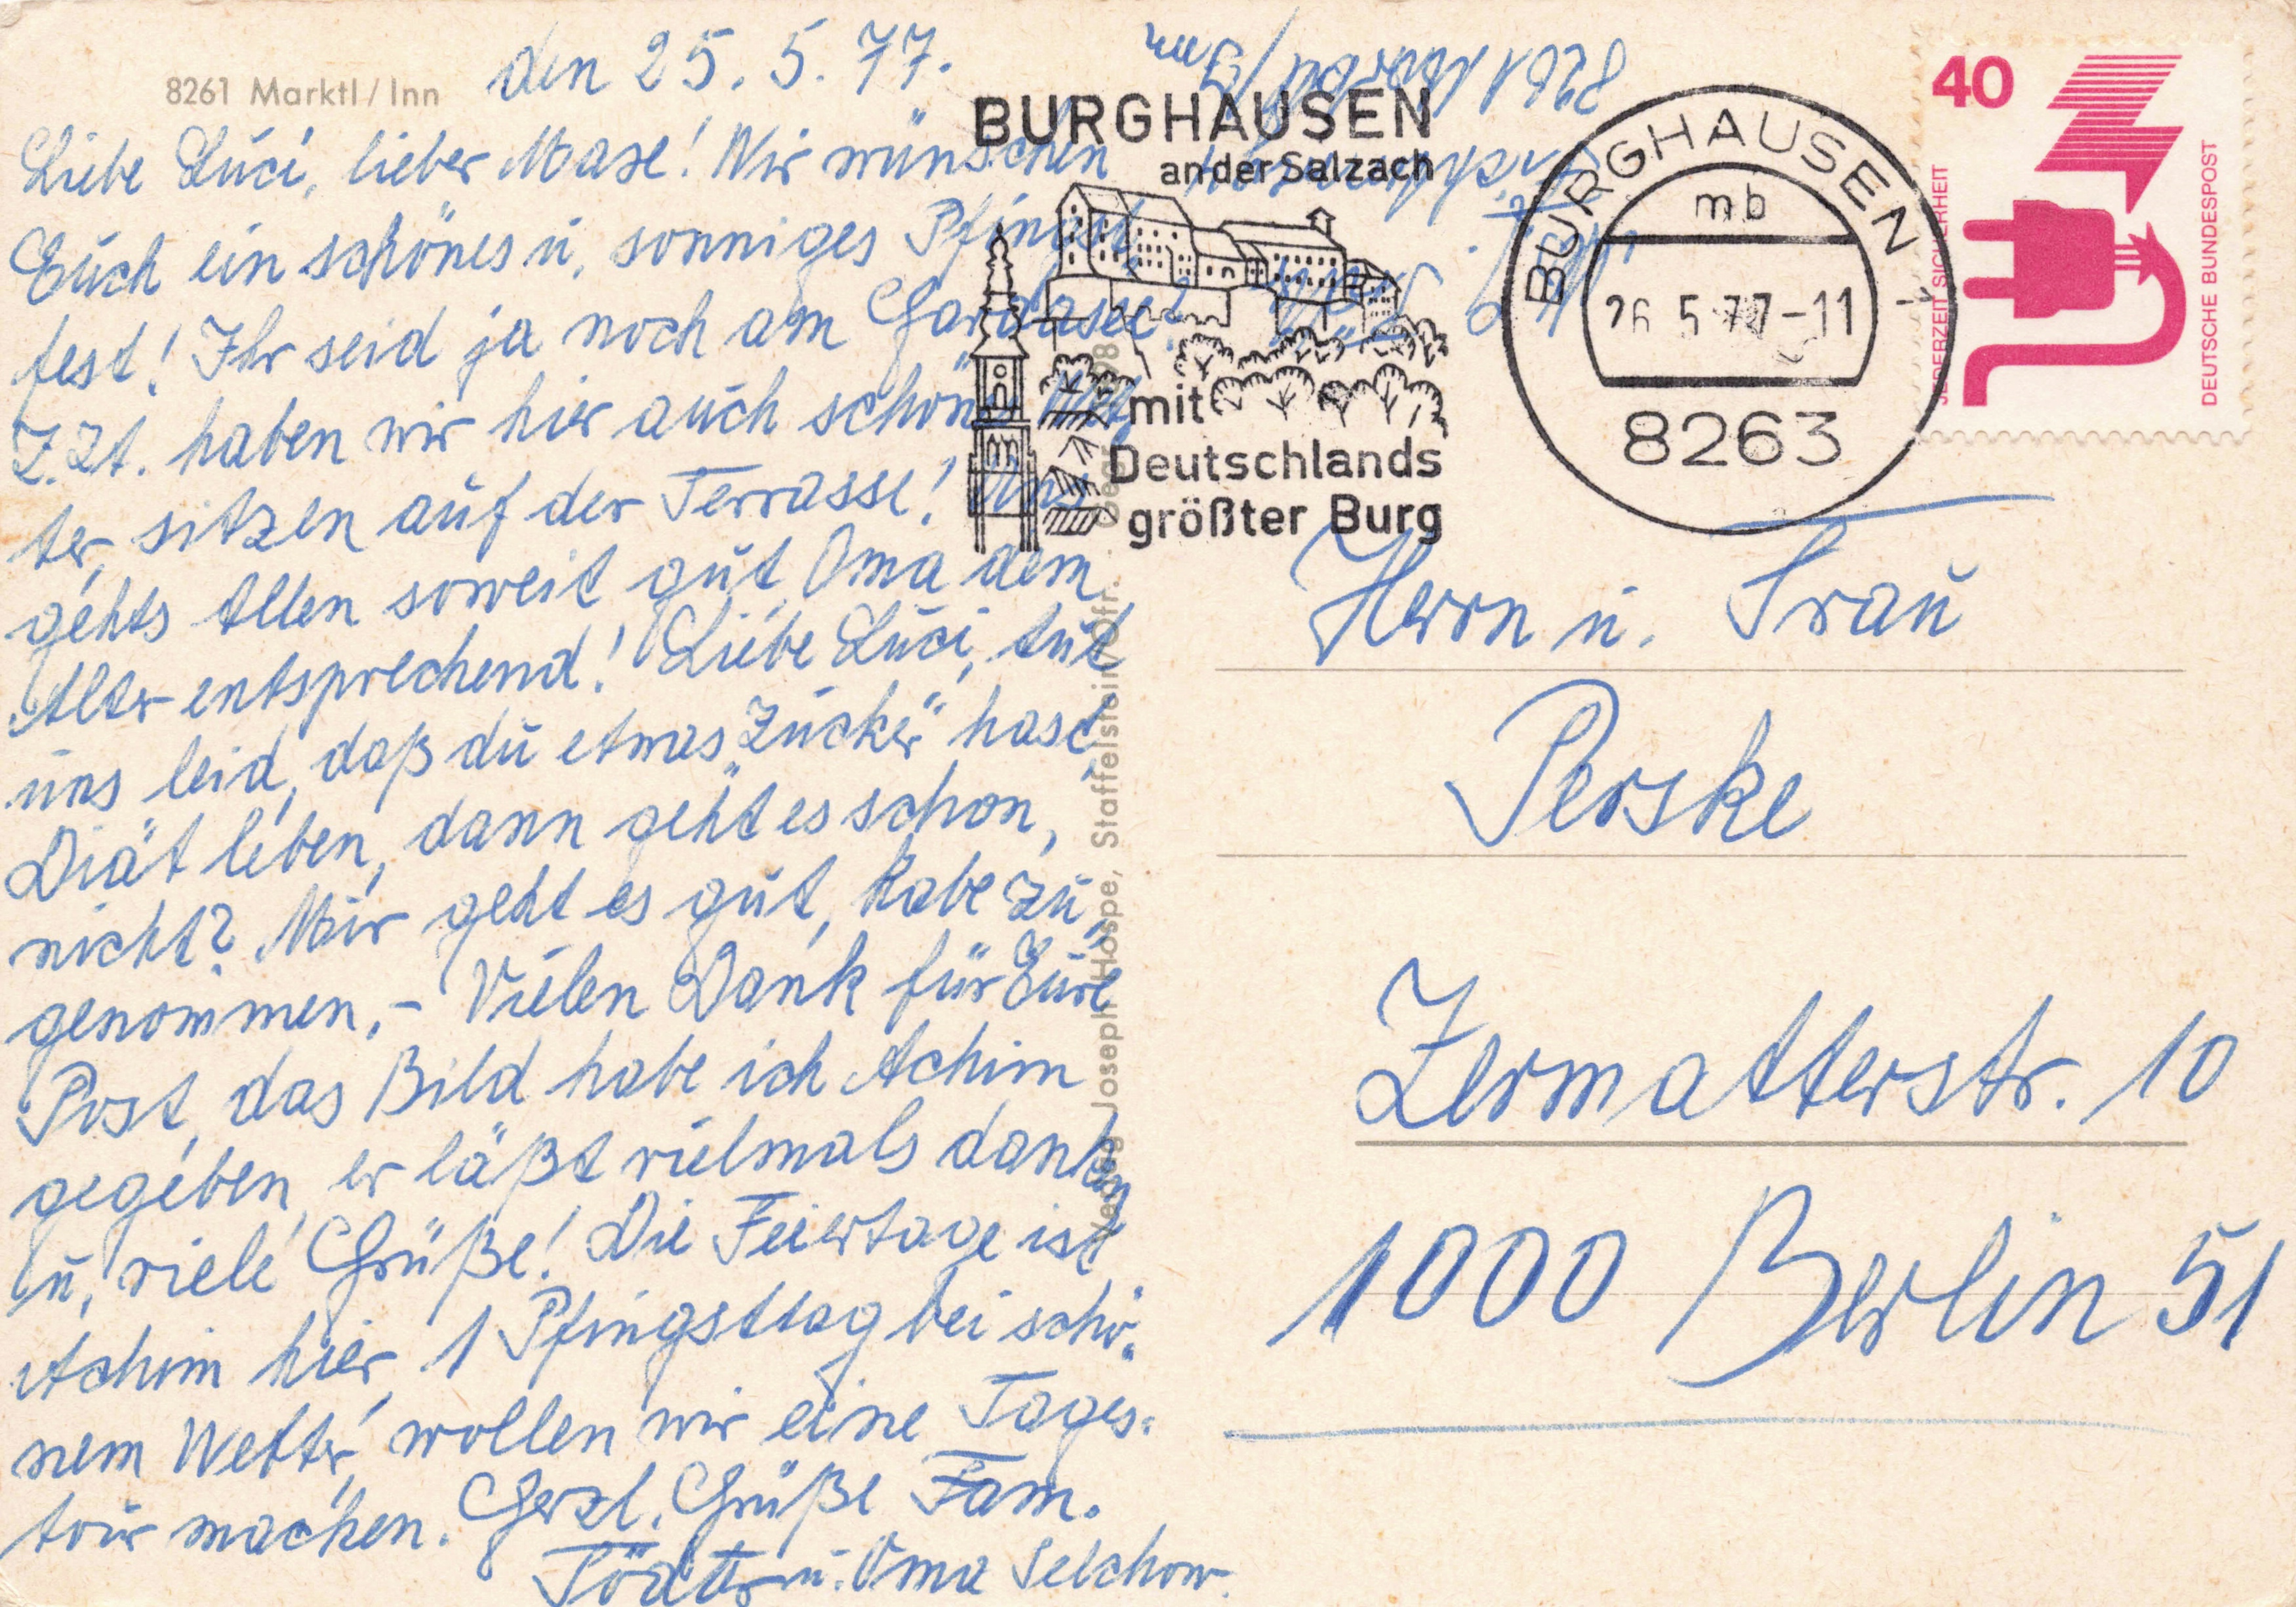 8261 Marktl / Inn den 25. 5. 77.
Liebe Luci, lieber Maxe! Wir wünschen
Euch ein schönes u. sonniges Pfingst
fest! Ihr seid ja noch am Gardasee?
Z. Zt. haben wir hier auch schön Wet
ter, sitzen auf der Terrasse! Uns
gehts Allen soweit gut, Oma dem
Alter entsprechend! Liebe Luci, tut
uns leid, daß du etwas „Zucker" hast,
Diät leben, dann geht es schon,
nicht? Mir geht es gut, habe zu,
genommen.- Vielen Dank für Eure
Post, das Bild habe ich Achim
gegeben, er läßt vielmals danken
u. viele Grüße! Die Feiertage ist
Achim hier, 1 Pfingsttag bei schö-
nem Wetter wollen wir eine Tages-
tour machen. Herzl. Grüße Fam.
u. Oma Selchow.
8261 Marktl / Inn
BURGHAUSEN
an der Salzach
mit
Deutschlands
größter Burg
BURGHAUSEN 1
mb
26.5.77-11
8263
40
JEDERZEIT SICHERHEIT
DEUTSCHE BUNDESPOST
Verlag Joseph Hospe, Staffelstein/Ofr.
Herrn u. Frau
Perske
Zermatterstr. 10
1000 Berlin 51